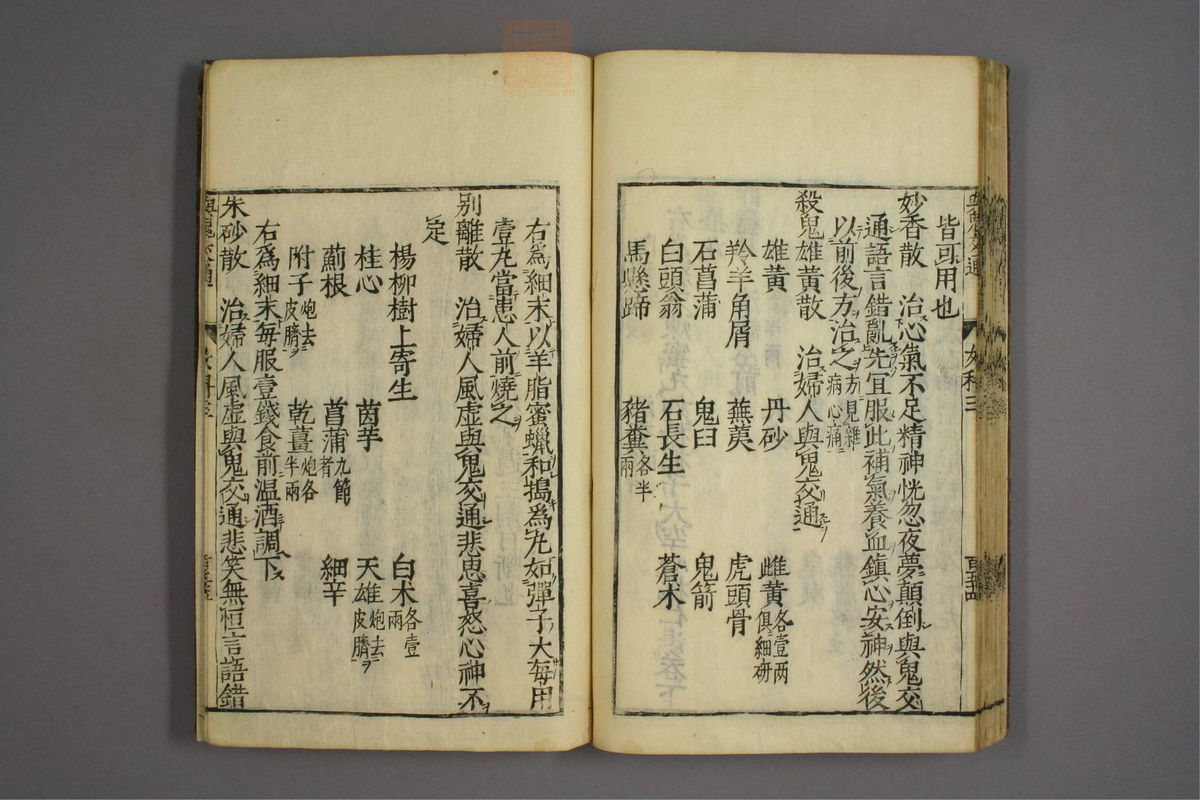 皆可用也
妙香散　治心氣不足精神恍忽夜夢顛倒與鬼交
通語言錯亂先宜服此補氣養血鎮心安神然後
以前後方治之方見雜病心痛
殺鬼雄黃散　治婦人與鬼交通
雄黃　丹砂　雌黃各壹两俱細研
羚羊角屑　蕪荑　虎頭骨
石菖蒲　鬼臼　鬼箭
白頭翁　石長生　蒼朮
馬懸蹄　豬糞各半兩
右爲細末以羊脂蜜蠟和搗爲丸如彈子大每用
壹丸當患人前燒之
別離散　治婦人風虛與鬼交通悲思喜怒心神不
定
楊柳樹上寄生　白朮各壹兩
桂心　茵芋　天雄炮去皮臍ヲ
薊根　菖蒲九節者　細辛
附子炮去皮臍ヲ　乾薑炮各半兩
右爲細末每服壹錢食前温酒調下
朱砂散　治婦人風虛與鬼交通悲笑無恒言語錯